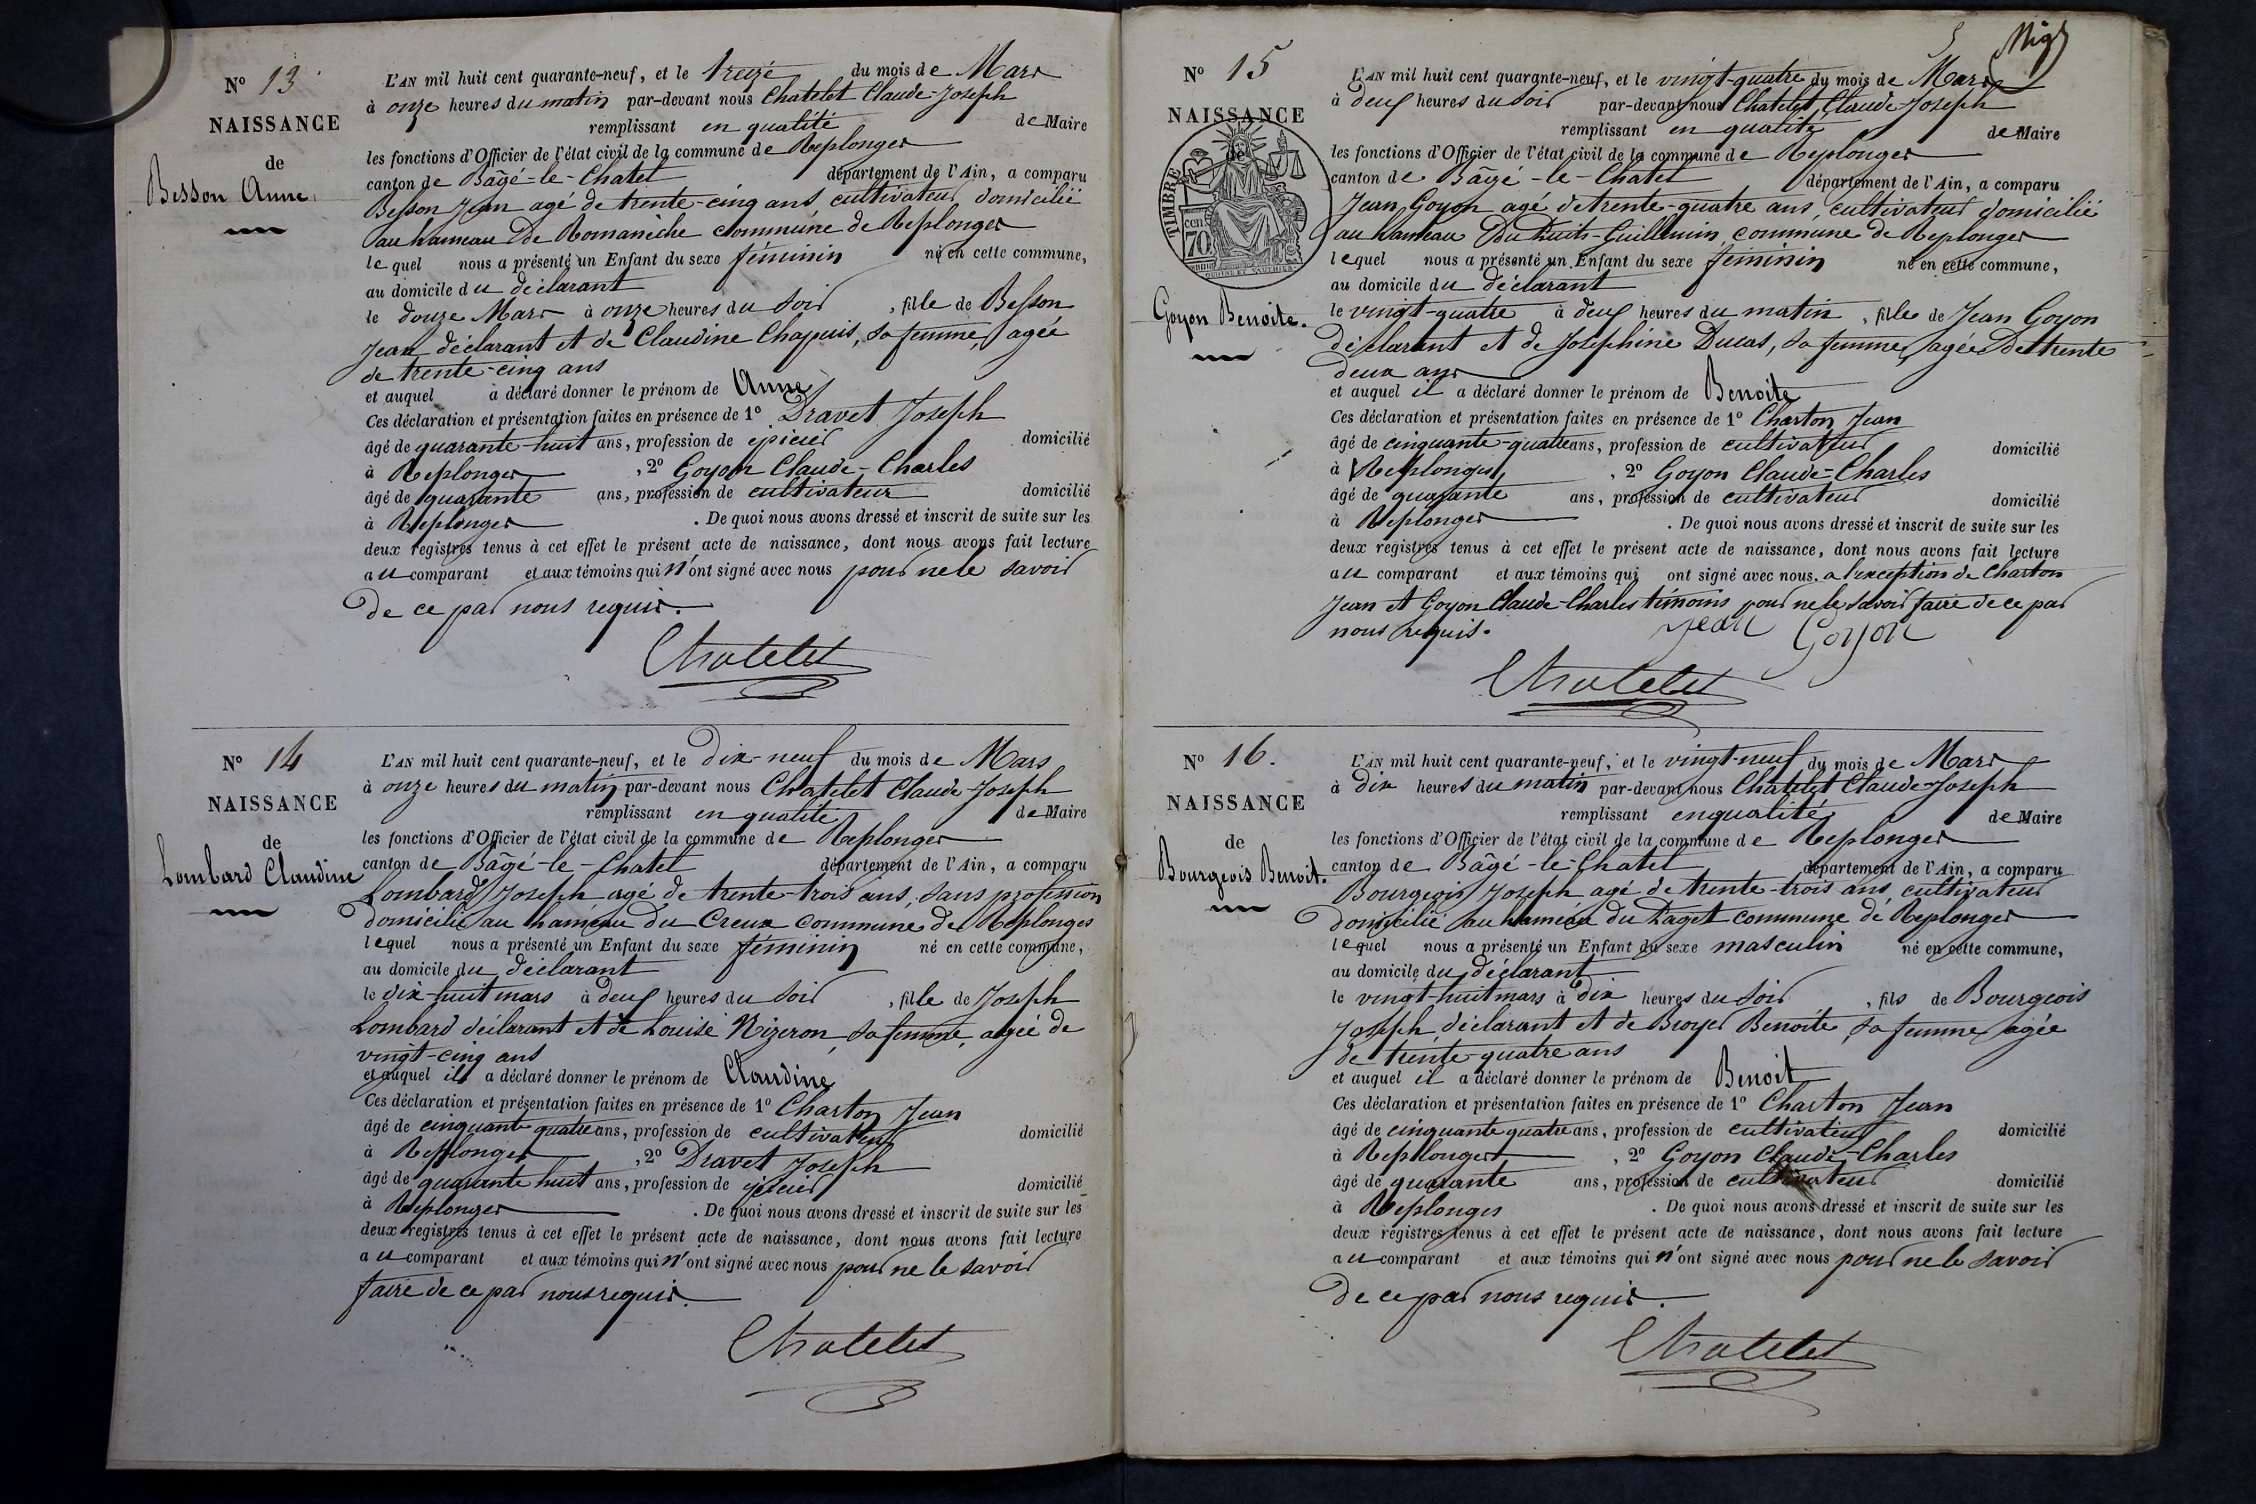 N° 13
NAISSANCE
de
Besson Anne
L'AN mil huit cent quarante-neuf, et le treize du mois de Mars
à onze heures du matin par-devant nous Chatelet Claude-Joseph
remplissant en qualité de Maire
les fonctions d'Officier de l'état civil de la commune de Replonges
canton de Bâgé-le-Chatel département de l'Ain, a comparu
Besson Jean agé de trente-cinq ans cultivateur domicilié
au hameau de Romaniche commune de Replonges
lequel nous a présenté un Enfant du sexe féminin né en cette commune,
au domicile du déclarant
le douze Mars à onze heures du soir, fille de Besson
Jean déclarant et de Claudine Chapuis, sa femme, agée
de trente-cinq ans
et auquel a déclaré donner le prénom de Anne
Ces déclaration et présentation faites en présence de 1° Dravet Joseph
âgé de quarante-huit ans, profession de épicier domicilié
à Replonges, 2° Goyon Claude-Charles
âgé de quarante ans, profession de cultivateur domicilié
à Replonges. De quoi nous avons dressé et inscrit de suite sur les
deux registres tenus à cet effet le présent acte de naissance, dont nous avons fait lecture
au comparant et aux témoins qui n'ont signé avec nous pour ne le savoir
de ce par nous requis.
Chatelet
N° 14
NAISSANCE
de
Lombard Claudine
L'AN mil huit cent quarante-neuf, et le dix-neuf du mois de Mars
à onze heures du matin par-devant nous Chatelet Claude Joseph
remplissant en qualité de Maire
les fonctions d'Officier de l'état civil de la commune de Replonges
canton de Bâgé-le-Chatel département de l'Ain, a comparu
Lombard Joseph agé de trente-trois ans, sans profession
domicilié au hameau du Creux commune de Replonges
lequel nous a présenté un Enfant du sexe féminin né en cette commune,
au domicile du déclarant
le dix-huit mars à deux heures du soir, fille de Joseph
Lombard déclarant et de Louise Nizeron, sa femme, agée de
vingt-cinq ans
et auquel il a déclaré donner le prénom de Claudine
Ces déclaration et présentation faites en présence de 1° Charton Jean
âgé de cinquante quatre ans, profession de cultivateur domicilié
à Replonges, 2° Dravet Joseph
âgé de quarante huit ans, profession de épicier domicilié
à Replonges. De quoi nous avons dressé et inscrit de suite sur les
deux registres tenus à cet effet le présent acte de naissance, dont nous avons fait lecture
au comparant et aux témoins qui n'ont signé avec nous pour ne le savoir
faire de ce par nous requis.
Chatelet
N° 15
NAISSANCE
de
TIMBRE
70
Goyon Benoite.
L'AN mil huit cent quarante-neuf, et le vingt-quatre du mois de Mars
à deux heures du soir par-devant nous Chatelet Claude-Joseph
remplissant en qualité de Maire
les fonctions d'Officier de l'état civil de la commune de Replonges
canton de Bâgé-le-Chatel département de l'Ain, a comparu
Jean Goyon agé de trente-quatre ans, cultivateur domicilié
au hameau du Puits-Guillemin commune de Replonges
lequel nous a présenté un Enfant du sexe féminin né en cette commune,
au domicile du déclarant
le vingt-quatre à deux heures du matin, fille de Jean Goyon
déclarant et de Joséphine Ducas, sa femme, agée de trente
deux ans
et auquel il a déclaré donner le prénom de Benoite
Ces déclaration et présentation faites en présence de 1° Charton Jean
âgé de cinquante-quatre ans, profession de cultivateur domicilié
à Replonges, 2° Goyon Claude-Charles
âgé de quarante ans, profession de cultivateur domicilié
à Replonges. De quoi nous avons dressé et inscrit de suite sur les
deux registres tenus à cet effet le présent acte de naissance, dont nous avons fait lecture
au comparant et aux témoins qui ont signé avec nous, a l'exception de Charton
Jean et Goyon Claude-Charles témoins pour ne le savoir faire de ce par
nous requis.
Jean Goyon
Chatelet
N° 16.
NAISSANCE
de
Bourgeois Benoit.
L'AN mil huit cent quarante-neuf, et le vingt-neuf du mois de Mars
à dix heures du matin par-devant nous Chatelet Claude-Joseph
remplissant en qualité de Maire
les fonctions d'Officier de l'état civil de la commune de Replonges
canton de Bâgé-le-Chatel département de l'Ain, a comparu
Bourgeois Joseph agé de trente-trois ans, cultivateur
domicilié au hameau du Paget commune de Replonges
lequel nous a présenté un Enfant du sexe masculin né en cette commune,
au domicile du déclarant
le vingt-huit mars à dix heures du soir, fils de Bourgeois
Joseph déclarant et de Broyer Benoite, sa femme, agée
de trente-quatre ans
et auquel il a déclaré donner le prénom de Benoit
Ces déclaration et présentation faites en présence de 1° Charton Jean
âgé de cinquante quatre ans, profession de cultivateur domicilié
à Replonges, 2° Goyon Claude-Charles
âgé de quarante ans, profession de cultivateur domicilié
à Replonges. De quoi nous avons dressé et inscrit de suite sur les
deux registres tenus à cet effet le présent acte de naissance, dont nous avons fait lecture
au comparant et aux témoins qui n'ont signé avec nous pour ne le savoir
de ce par nous requis.
Chatelet